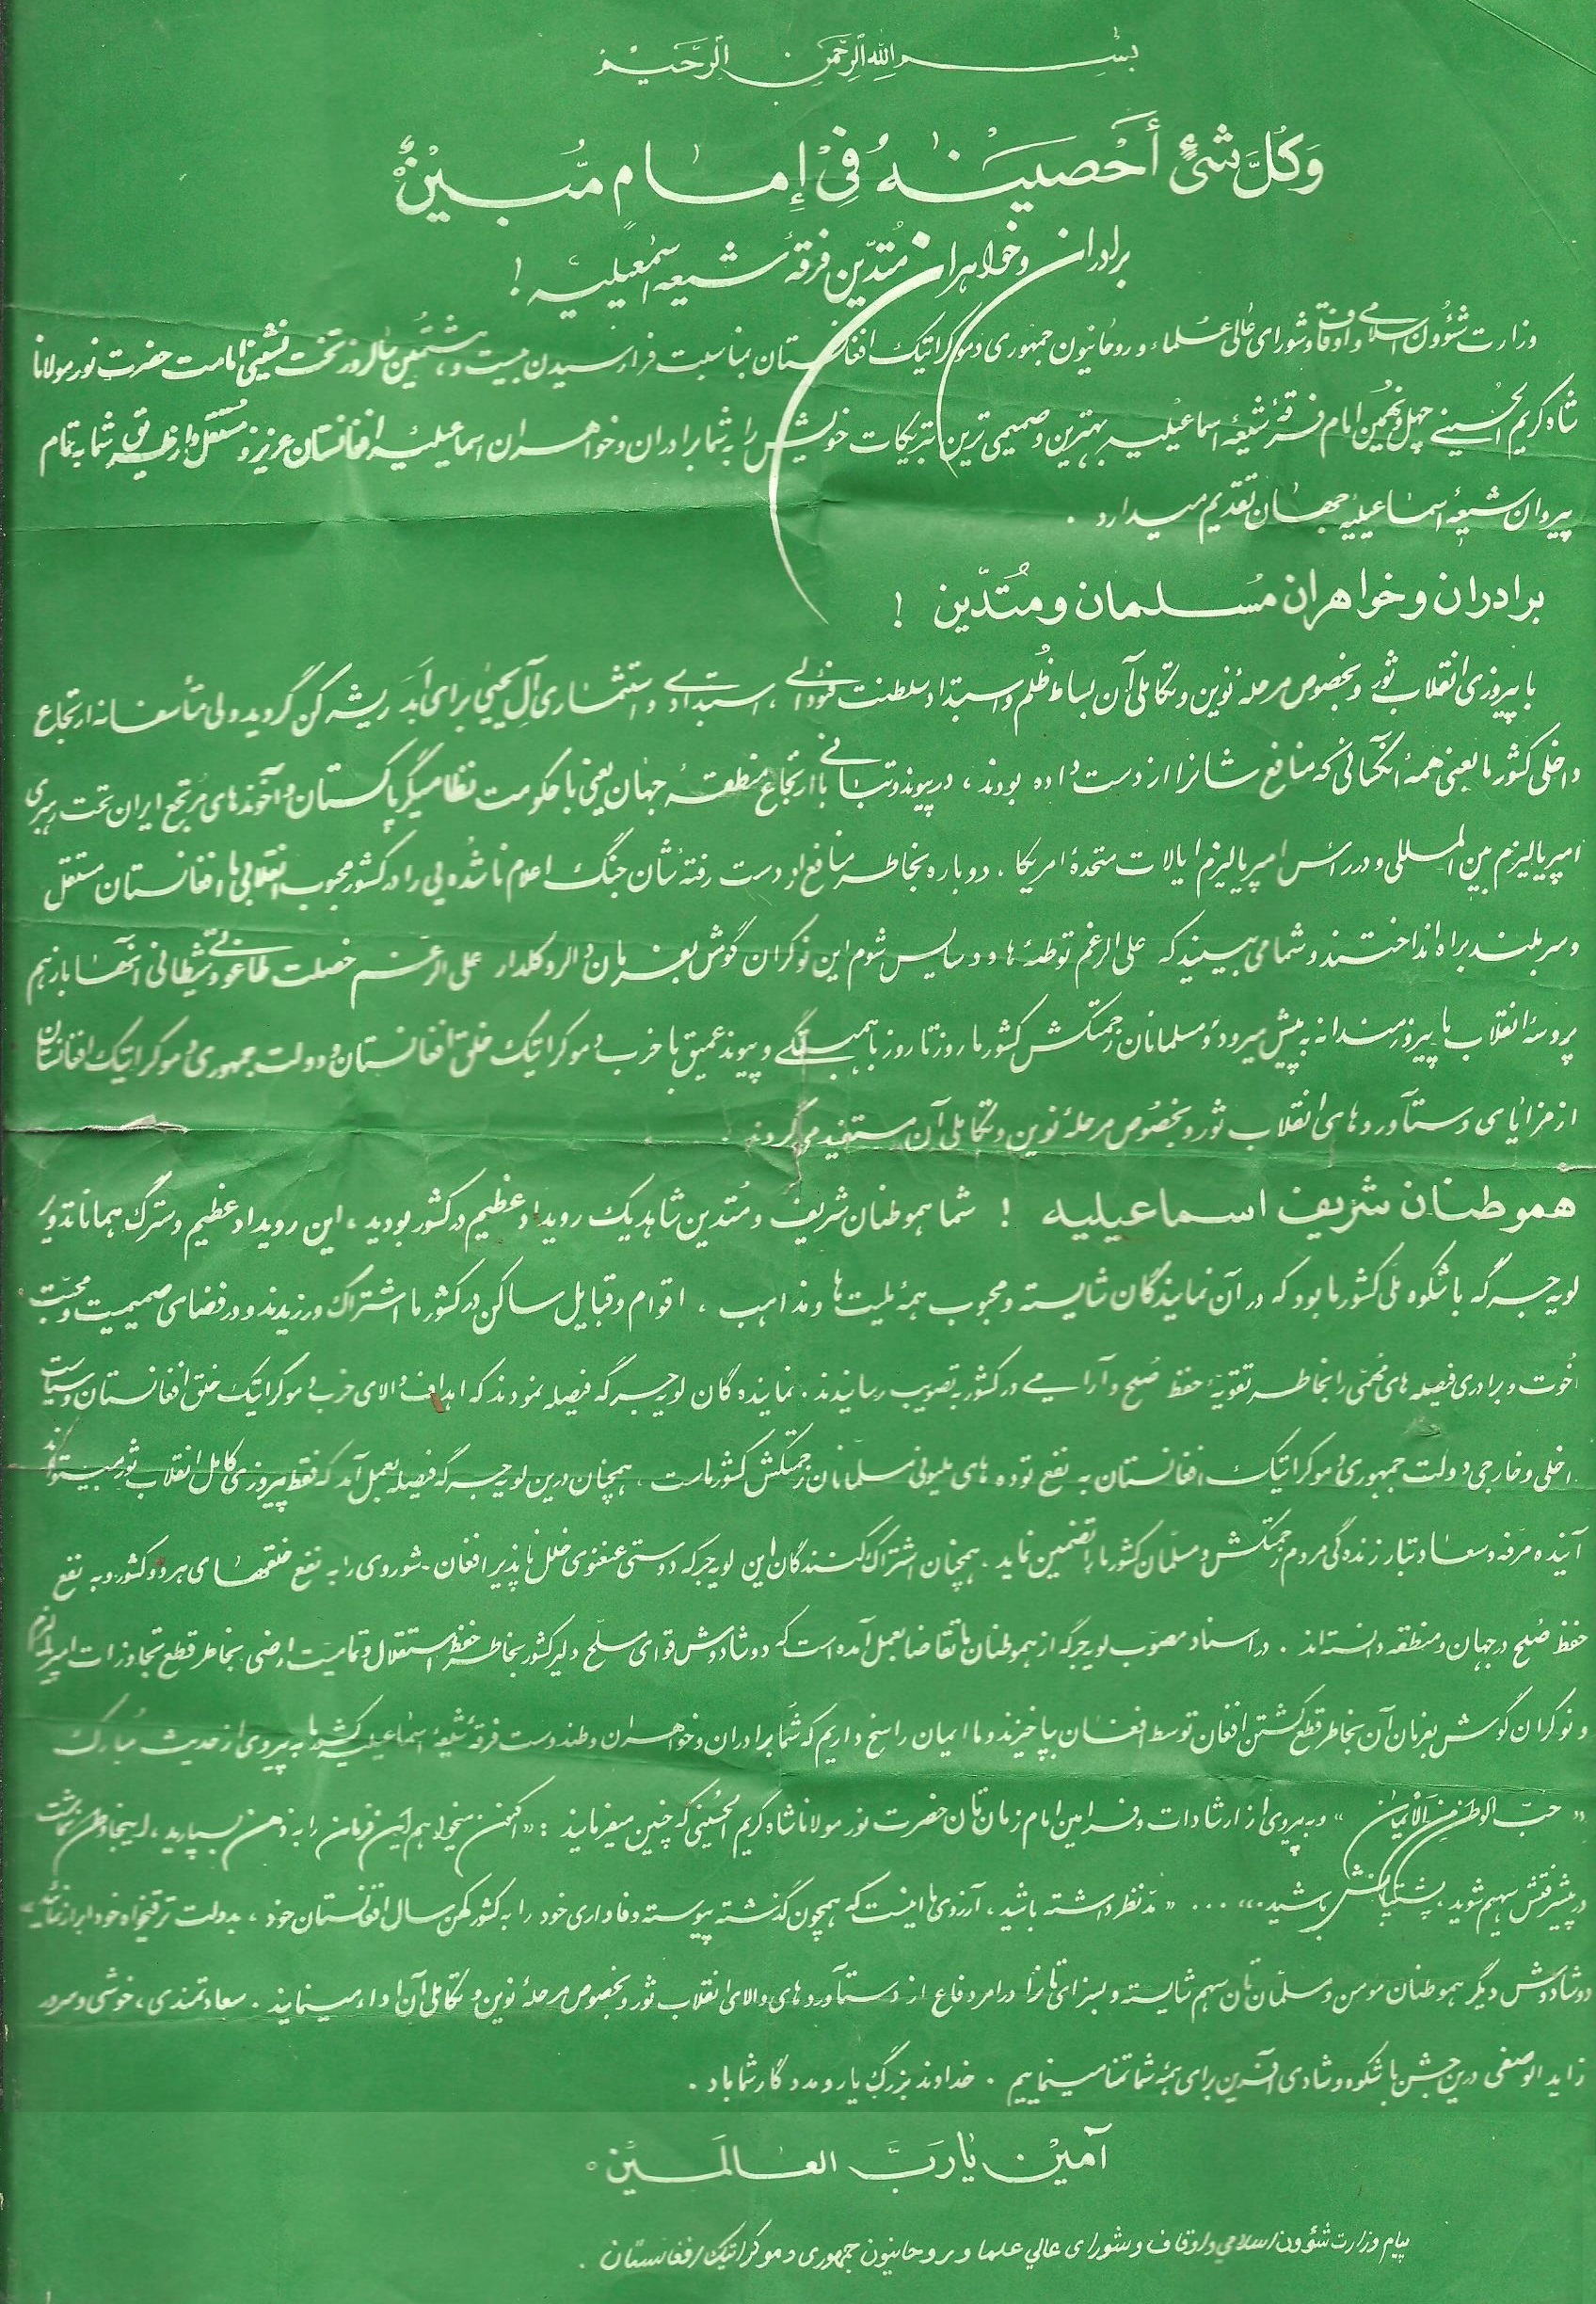 بسم الله الرحمن الرحيم
وَكُلَّ شَيْءٍ أَحْصَيْنٰهُ فِيْ إِمَامٍ مُّبِيْنٍ
برادران وخواهران مُتدیّن فرقهٔ شیعه اسمٰعیلیه !
وزارت شؤون اسلامی واوقاف وشورای عالی علماء وروحانیون جمهوری دموکراتیک افغانستان بمناسبت فرا رسیدن بیست و هشتمین سالروز تخت نشینی امامت حضرت نور مولانا
شاه کریم الحسینی چهل ونهمین امام فرقهٔ شیعهٔ اسماعیلیه بهترین وصمیمی ترین تبریکات خویش را به شما برادران وخواهران اسماعیلیهٔ افغانستان عزیز و مستقل واز طریق شما به تمام
پیروان شیعهٔ اسماعیلیه جهان تقدیم میدارد .
برادران وخواهران مُسلمان ومُتدّین !
با پیروزی انقلاب ثور وبخصوص مرحلهٔ نوین وتکاملی آن بساط ظلم واستبداد سلطنت فئودالی ، استبدادی واستثماری آل یحیی برای ابد ریشه کن گردید ولی متأسفانه ارتجاع
داخلی کشور ما یعنی همهٔ آنکسانی که منافع شانرا از دست داده بودند ، در پیوند وتبانی با ارتجاع منطقهٔ جهان یعنی با حکومت نظامیگر پاکستان وآخوندهای مرتجع ایران تحت رهبری
امپریالیزم بین المللی ودر رأس امپریالیزم ایالات متحدهٔ امریکا ، دوباره بخاطر منافع از دست رفتهٔ شان جنگ اعلام ناشده یی را در کشور محبوب انقلابی ما افغانستان مستقل
وسربلند براه انداختند وشما می بینید که علی الرغم توطئه ها ودسایس شوم این نوکران گوش بفرمان دالر وکلدار علی الرغم خصلت طاغوتی وشیطانی آنها باز هم
پروسهٔ انقلاب ما پیروزمندانه به پیش میرود ومسلمانان زحمتکش کشور ما روز تا روز با همبستگی وپیوند عمیق با حزب دموکراتیک خلق افغانستان ودولت جمهوری دموکراتیک افغانستان
از مزایای دستآوردهای انقلاب ثور وبخصوص مرحلهٔ نوین وتکاملی آن مستفید میگردند .
هموطنان شریف اسماعیلیه ! شما هموطنان شریف ومُتدین شاهد یک رویداد عظیم در کشور بودید ، این رویداد عظیم وسترگ همانا تدویر
لویه جرگه باشکوه ملی کشور ما بود که در آن نمایندگان شایسته ومحبوب همهٔ ملیت ها ومذاهب ، اقوام وقبایل ساکن در کشور ما اشتراک ورزیدند ودر فضای صمیمیت ومحبت
اخوت وبرادری فیصله های مهمی را بخاطر تقویهٔ حفظ صلح وآرامی در کشور به تصویب رسانیدند . نماینده گان لویه جرگه فیصله نمودند که اهداف والای حزب دموکراتیک خلق افغانستان وسیاست
داخلی وخارجی دولت جمهوری دموکراتیک افغانستان به نفع توده های ملیونی مسلمانان زحمتکش کشور ماست ، همچنان درین لویه جرگه فیصله بعمل آمد که فقط پیروزی کامل انقلاب ثور میتواند
آینده مرفه وسعادتبار زنده گی مردم زحمتکش ومسلمان کشور ما را تضمین نماید . همچنان اشتراک کنندگان این لویه جرگه دوستی عنعنوی خلل ناپذیر افغان - شوروی را به نفع خلقهای هر دو کشور وبه نفع
حفظ صلح در جهان ومنطقه دانسته اند . در اسناد مصوب لویه جرگه از هموطنان ما تقاضا بعمل آمده است که دوشادوش قوای مسلح دلیر کشور بخاطر حفظ استقلال وتمامیت ارضی بخاطر قطع تجاوزات امپریالیزم
و نوکران گوش بفرمان آن بخاطر قطع کشتن افغان توسط افغان بپاخیزند وما ایمان راسخ داریم که شما برادران وخواهران وطندوست فرقهٔ شیعهٔ اسماعیلیه کشور ما به پیروی از حدیث مبارک
« حب الوطن من الایمان » وبه پیروی از ارشادات وفرامین امام زمان تان حضرت نور مولانا شاه کریم الحسینی که چنین میفرمایند : « اکنون میخواهم این فرمان را به ذهن بسپارید ، اینجا وطن شماست
در پیشرفتش سهیم شوید ، پشتیبانش باشید » ... « مد نظر داشته باشید ، آرزوی ما اینست که همچون گذشته پیوسته وفاداری خود را به کشور کهن سال افغانستان خود ، بدولت ترقیخواه خود ابراز نمائید »
دوشادوش دیگر هموطنان مؤمن ومسلمان تان سهم شایسته وبسزای تانرا در امر دفاع از دستآوردهای والای انقلاب ثور وبخصوص مرحلهٔ نوین وتکاملی آن اداء مینمایند . سعادتمندی ، خوشی وسرور
زاید الوصفی درین جشن باشکوه وشادی آفرین برای همهٔ شما تمنا مینماییم . خداوند بزرگ یار ومددگار شما باد .
آمین یا ربَّ العالَمین
پیام وزارت شؤون اسلامی واوقاف وشورای عالی علما وروحانیون جمهوری دموکراتیک افغانستان .